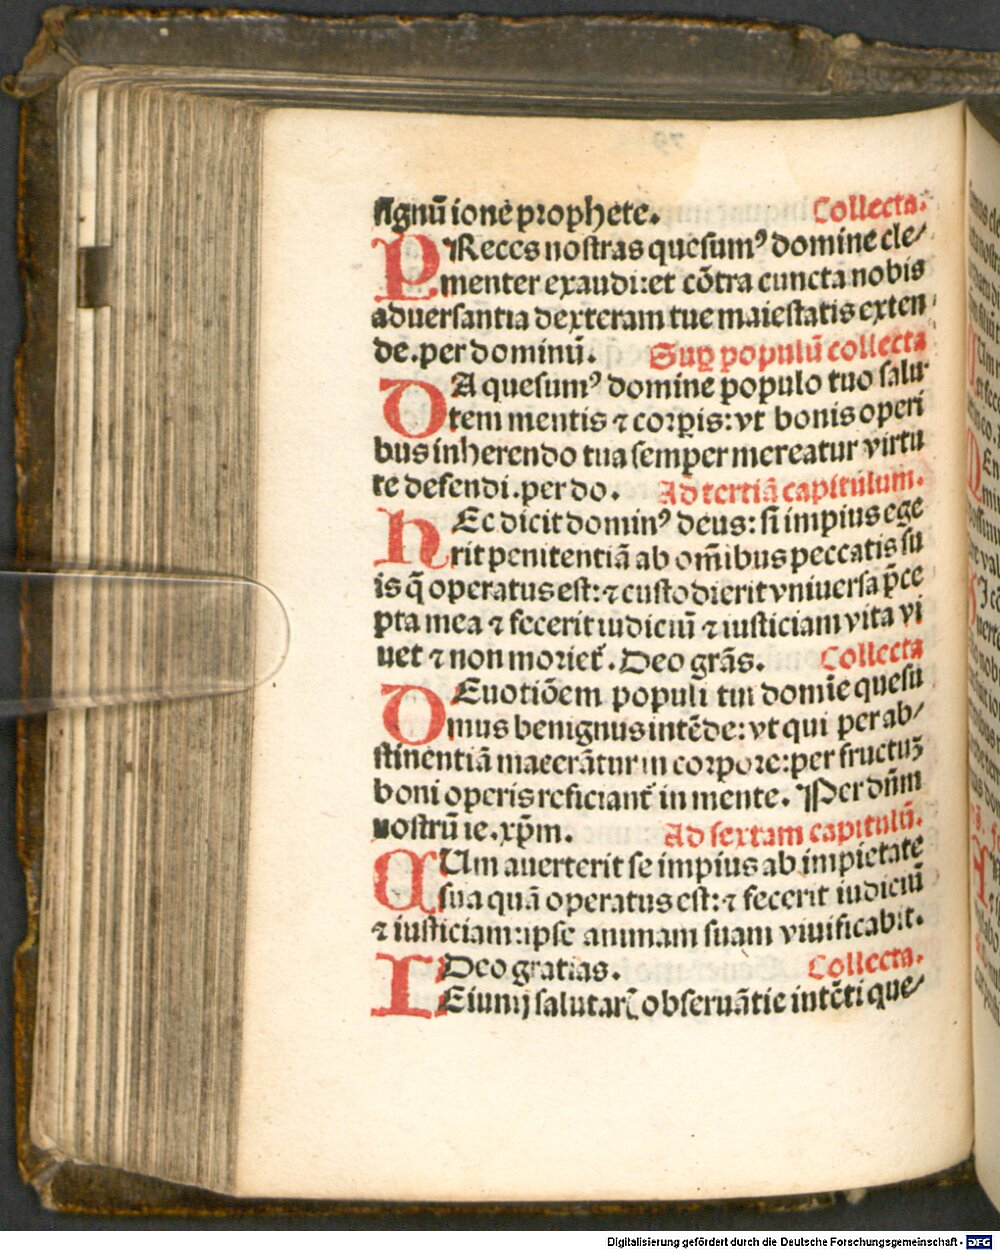 signū ione prophete. Collecta.
PReces nostras quesumꝰ domine cle/
menter exaudi: et cōtra cuncta nobis
aduersantia dexteram tue maiestatis exten
de. per dominū. Suꝑ populū collecta
DA quesumꝰ domine populo tuo salu
tem mentis ⁊ corꝑis: vt bonis operi
bus inherendo tua semper mereatur virtu
te defendi. per do. Ad tertiā capitulum.
hEc dicit dominꝰ deus: si impius ege
rit penitentiā ab om̄ibus peccatis su
is q̄ operatus est: ⁊ custodierit vniuersa p̄ce
pta mea ⁊ fecerit iudiciū ⁊ iusticiam vita vi
uet ⁊ non moriet̄. Deo grās. Collecta
DEuotiōem populi tui domīe quesu
mus benignus intēde: vt qui per ab/
stinentiā macerātur in corpore: per fructuꝫ
boni operis reficiant̄ in mente. Per dn̄m
nostrū ie. xp̄m. Ad sextam capitulū.
CUm auerterit se impius ab impietate
sua quā operatus est: ⁊ fecerit iudiciū
⁊ iusticiam: ipse animam suam viuificabit.
Deo gratias. Collecta.
IEiunij salutarꝭ obseruātie intēti que/
Digitalisierung gefördert durch die Deutsche Forschungsgemeinschaft - DFG